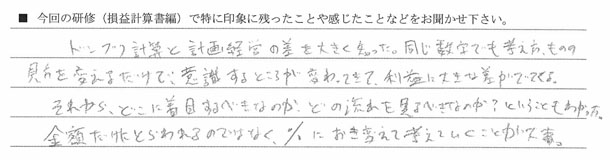 ■ 今回の研修（損益計算書編）で特に印象に残ったことや感じたことなどをお聞かせ下さい。
ドンブリ計算と計画経営の差を大きく知った。同じ数字でも考え方、ものの
見方を変えるだけで、意識するところが変わってきて、利益に大きな差がでてくる。
それから、どこに着目するべきなのか、どの流れを見るべきなのか？ということもわかった。
金額だけにとらわれるのではなく、％におき変えて考えていくことが大事。